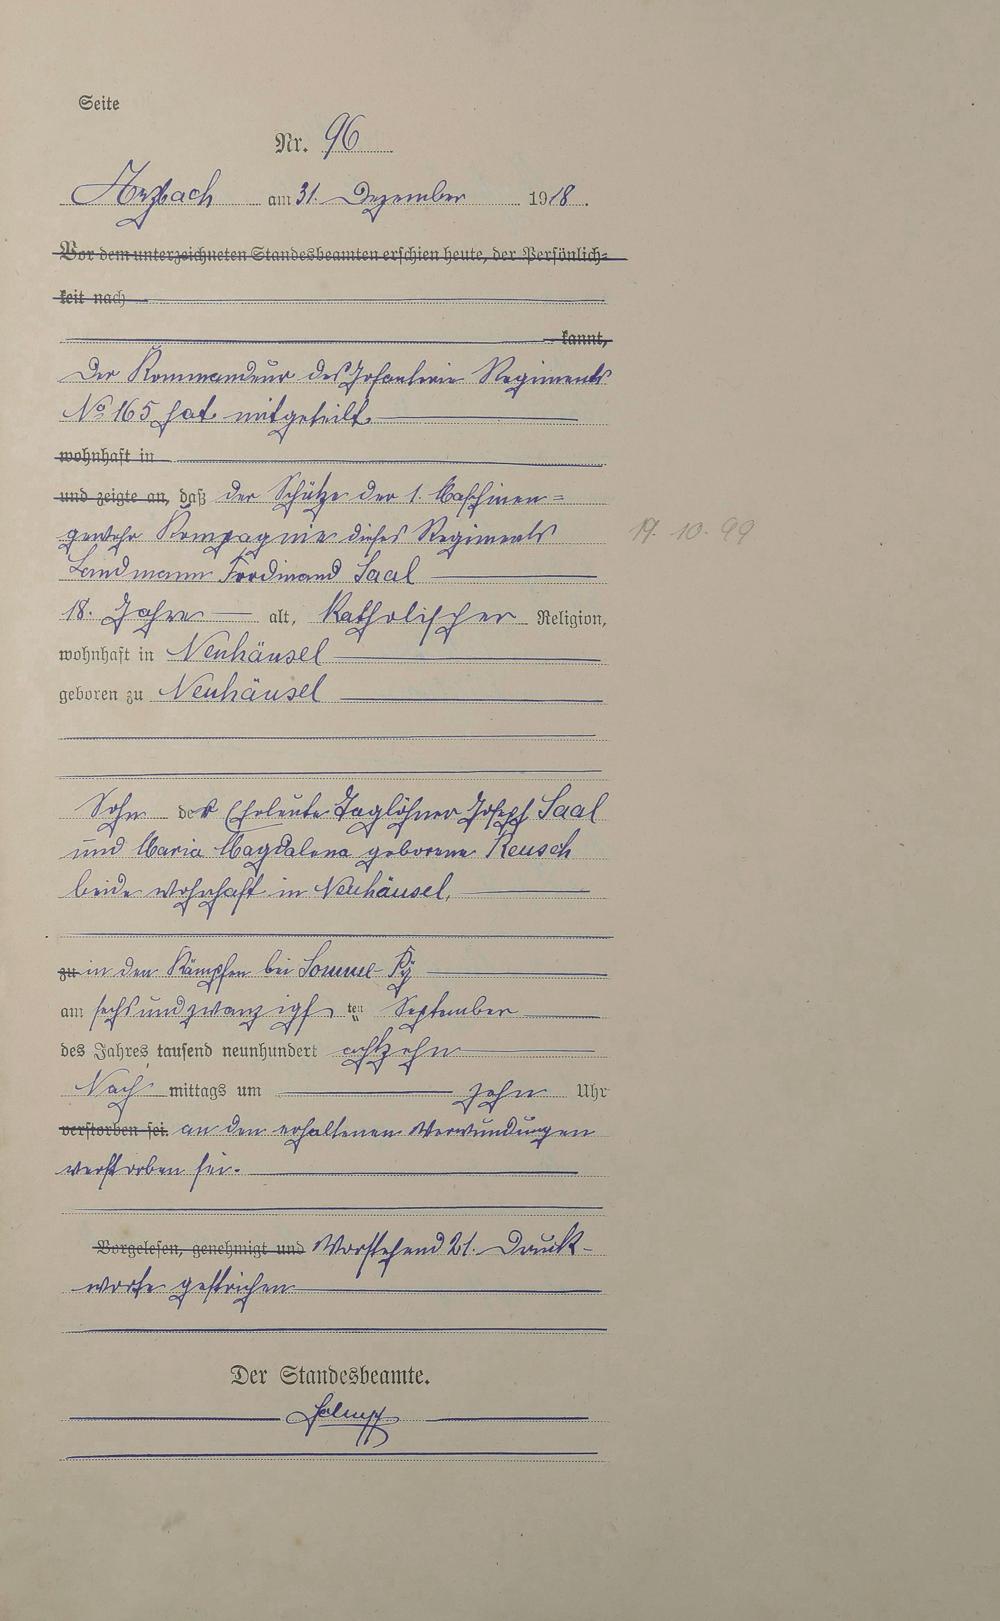 Seite
Nr. 96
Arzbach am 31. Dezember 1918.
Vor dem unterzeichneten Standesbeamten erschien heute, der Persönlich-
keit nach
kannt,
Der Kommandeur des Infanterie Regiments
No 165 hat mitgeteilt
wohnhaft in
und zeigte an, daß der Schütze der 1. Maschinen-
gewehr Kompagnie dieses Regiments
19. 10. 99
Landmann Ferdinand Saal
18. Jahre alt, katholischer Religion,
wohnhaft in Neuhäusel
geboren zu Neuhäusel
Sohn der Eheleute Taglöhner Joseph Saal
und Maria Magdalena geborene Reusch
beide wohnhaft in Neuhäusel,
zu in den Kämpfen bei Somme-Py
am sechsundzwanzigsten September
des Jahres tausend neunhundert achtzehn
Nach mittags um zehn Uhr
verstorben sei. an den erhaltenen Verwundungen
verstorben sei.
Vorgelesen, genehmigt und Vorstehend 21. Druck-
worte gestrichen
Der Standesbeamte.